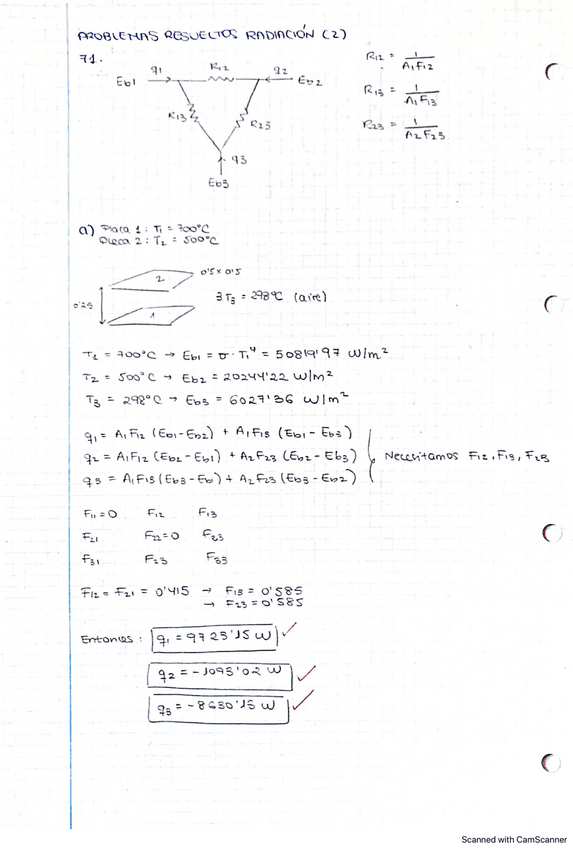 PROBLEMAS RESUELTOS RADIACIÓN (2)
71.
Eb1 q1 R12 q2 Eb2
R13 R23
q3
Eb3
R12 = 1 / A1F12
R13 = 1 / A1F13
R23 = 1 / A2F23
a) Placa 1: T1 = 700°C
Placa 2: T2 = 500°C
2 0'5 x 0'5
0'25 3 T3 = 298°C (aire)
1
T1 = 700°C → Eb1 = σ · T1⁴ = 50819'97 W/m²
T2 = 500°C → Eb2 = 20244'22 W/m²
T3 = 298°C → Eb3 = 6027'36 W/m²
q1 = A1F12 (Eb1-Eb2) + A1F13 (Eb1-Eb3)
q2 = A1F12 (Eb2-Eb1) + A2F23 (Eb2-Eb3) Necesitamos F12, F13, F23
q3 = A1F13 (Eb3-Eb1) + A2F23 (Eb3-Eb2)
F11=0 F12 F13
F21 F22=0 F23
F31 F23 F33
F12 = F21 = 0'415 → F13 = 0'585
→ F23 = 0'585
Entonces: q1 = 9725'15 W
q2 = -1095'02 W
q3 = -8630'15 W
Scanned with CamScanner